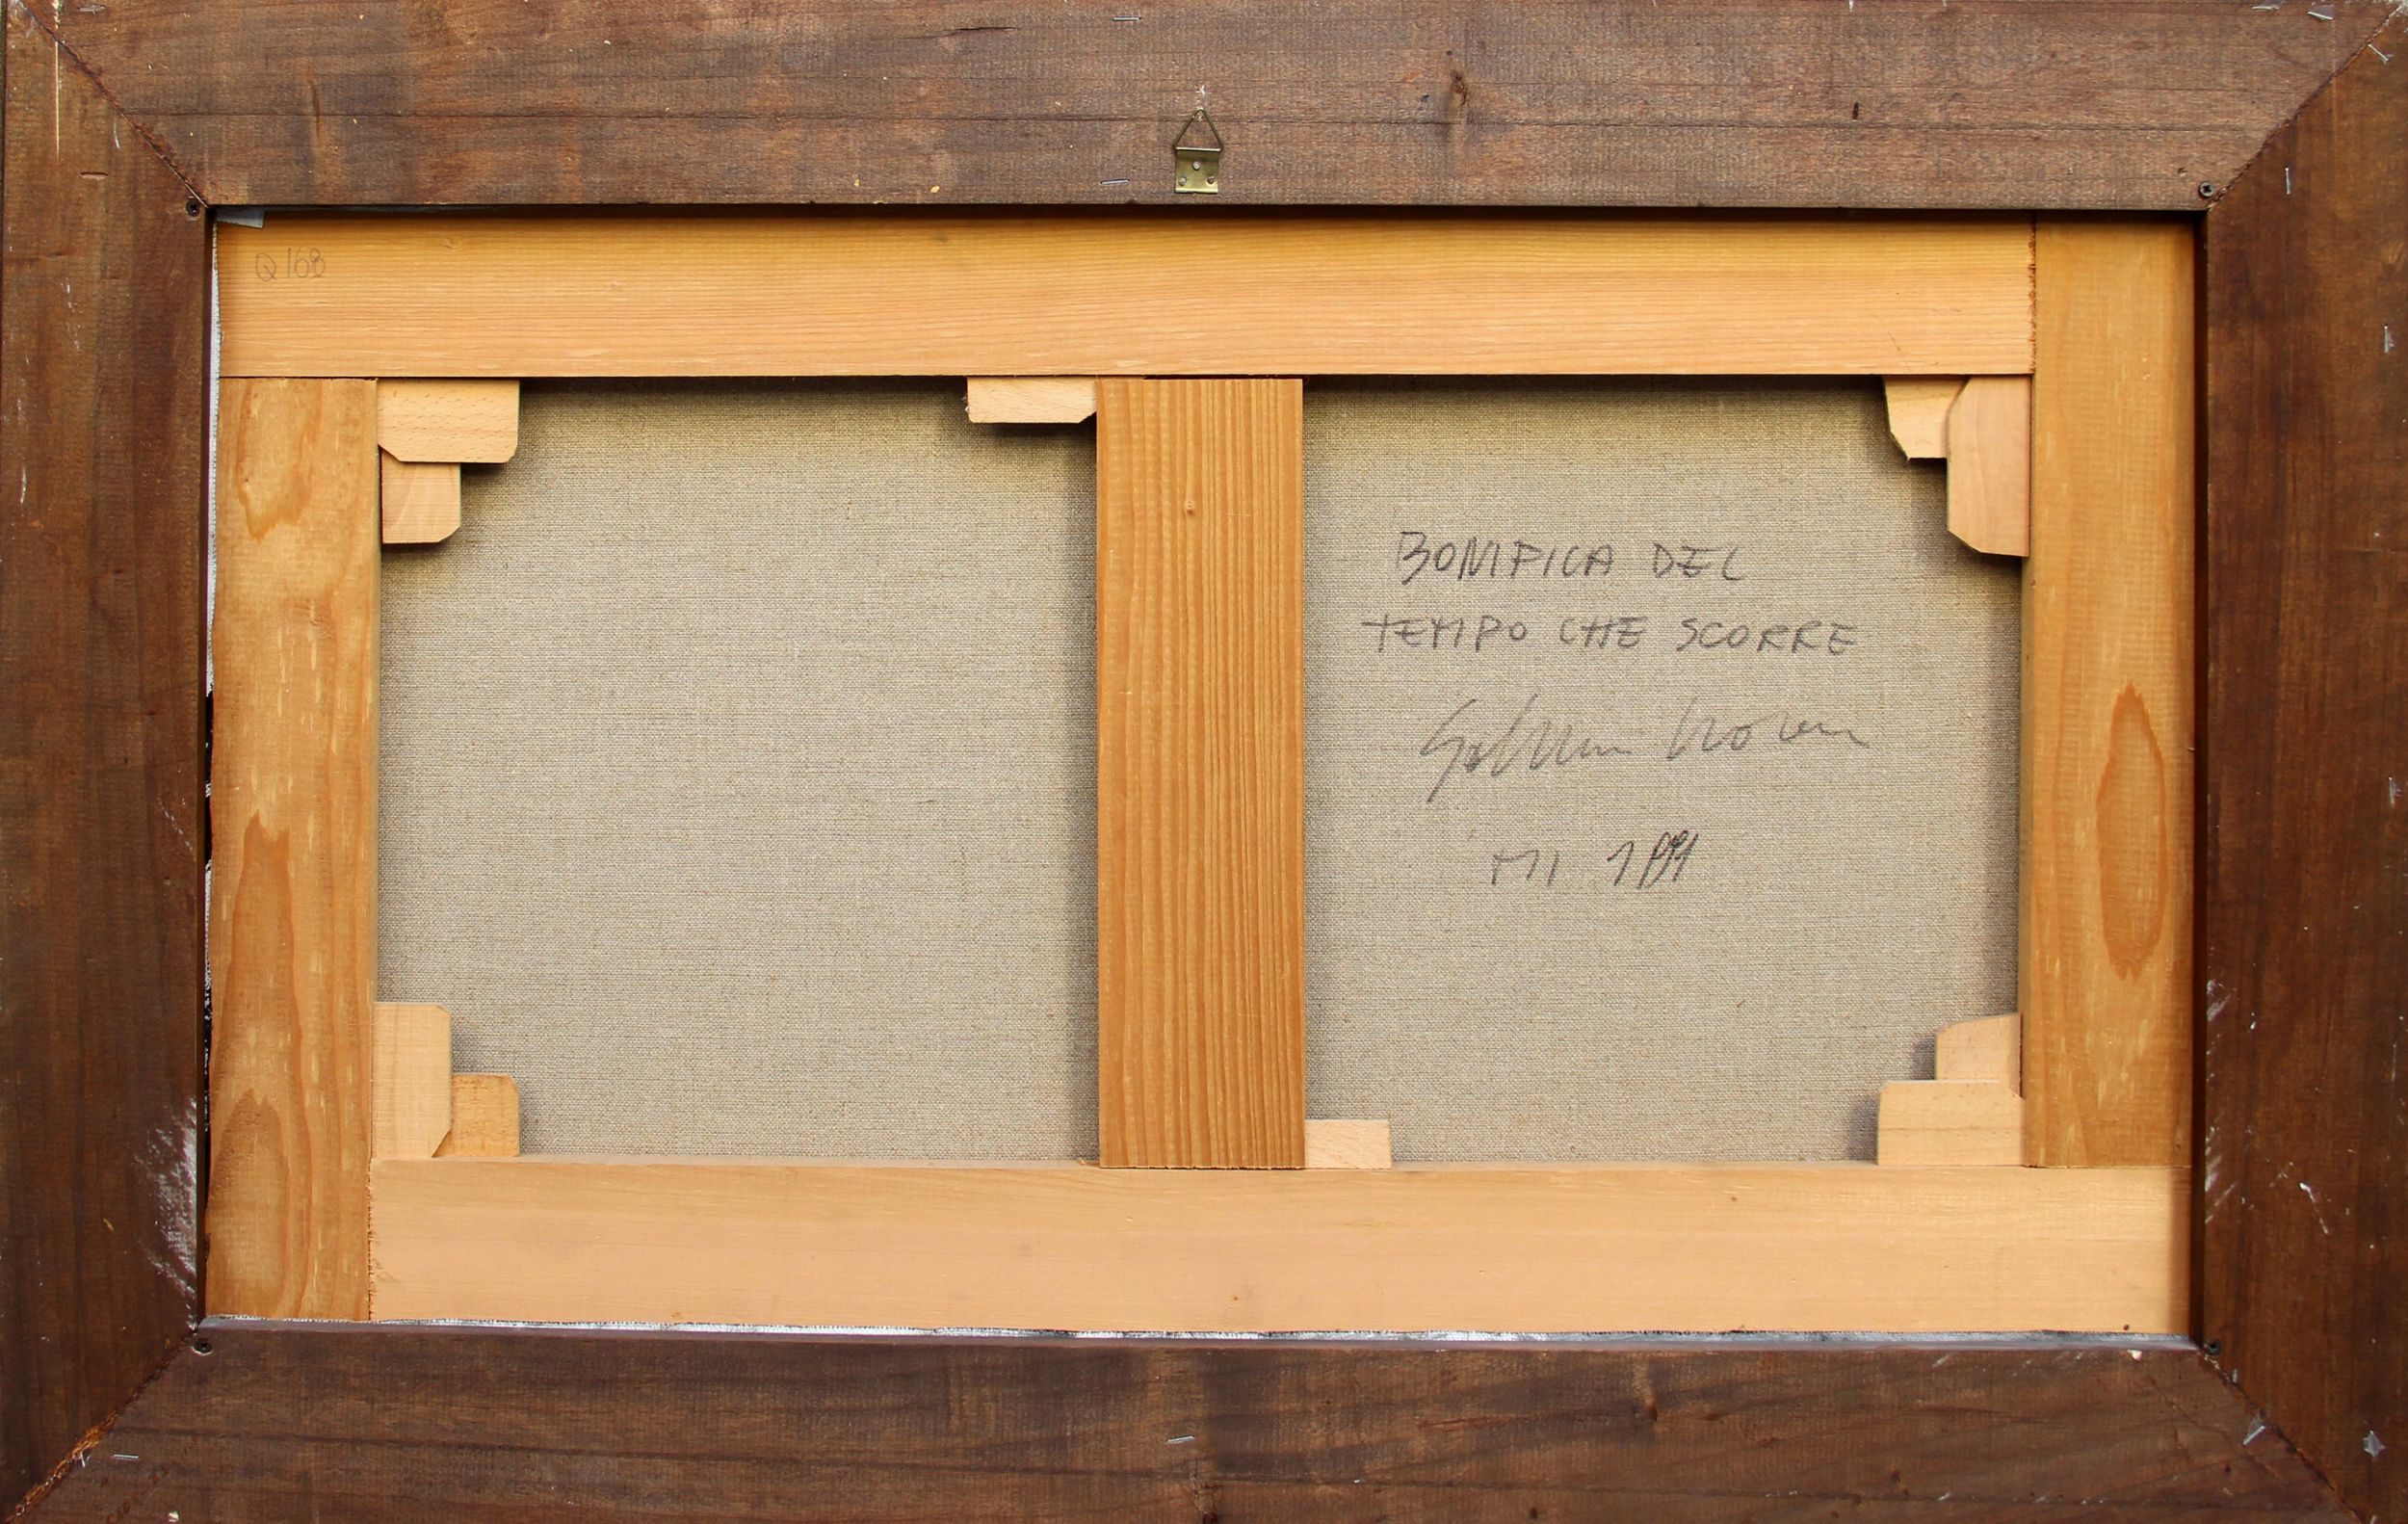 Q168
BOMPICA DEL
TEMPO CHE SCORRE
MI 1991